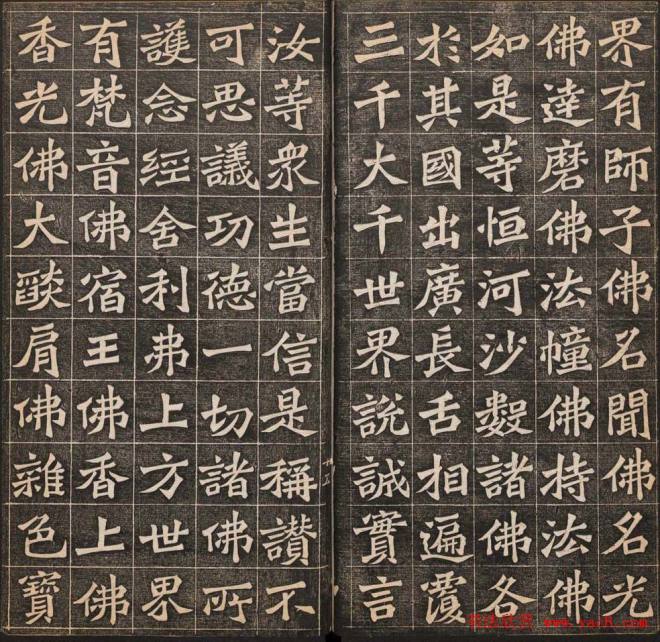 界有師子佛名聞佛名光
佛達磨佛法幢佛持法佛
如是等恒河沙數諸佛各
於其國出廣長舌相遍覆
三千大千世界說誠實言
汝等衆生當信是稱讃不
可思議功德一切諸佛所
護念經舍利弗上方世界
有梵音佛宿王佛香上佛
香光佛大燄肩佛雜色寶
十五